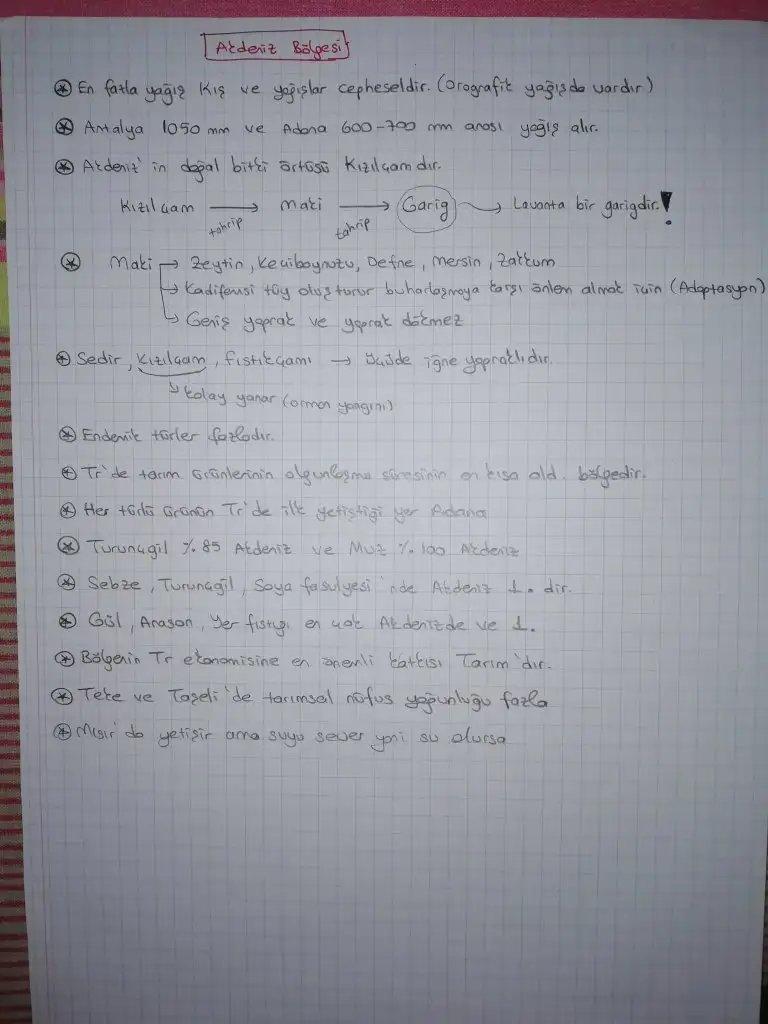 Akdeniz Bölgesi
En fazla yağış Kış ve yağışlar cepheseldir. (Orografik yağışda vardır)
Antalya 1050 mm ve Adana 600-700 mm arası yağış alır.
Akdeniz'in doğal bitki örtüsü Kızılçamdır.
Kızılçam → maki → Garig → Lavanta bir garigdir.!
tahrip tahrip
Maki → Zeytin, Keçiboynuzu, Defne, Mersin, Zakkum
→ Kadifemsi tüy oluşturur buharlaşmaya karşı önlem almak için (Adaptasyon)
→ Geniş yaprak ve yaprak dökmez
Sedir, Kızılçam, fıstıkçamı → üçüde iğne yapraklıdır.
→ kolay yanar (orman yangını)
Endemik türler fazladır.
Tr'de tarım ürünlerinin olgunlaşma süresinin en kısa old. bölgedir.
Her türlü ürünün Tr'de ilk yetiştiği yer Adana
Turunçgil %85 Akdeniz ve Muz %100 Akdeniz
Sebze, Turunçgil, Soya fasulyesi'nde Akdeniz 1. dir.
Gül, Anason, Yer fıstığı en çok Akdenizde ve 1.
Bölgenin Tr ekonomisine en önemli katkısı Tarım'dır.
Teke ve Taşeli'de tarımsal nüfus yoğunluğu fazla
Mısır'da yetişir ama suyu sever yani su olursa